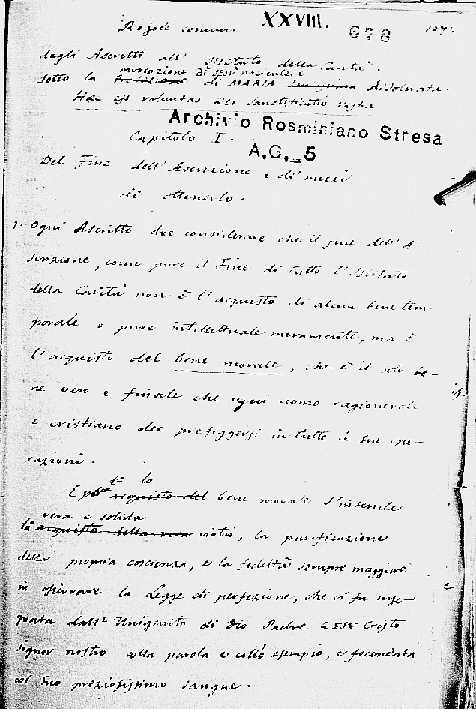 Regole comuni XXVIII. 678
degli Ascritti all' Istituto della Carità
sotto la protezione di Gesù nascente e
di MARIA Santissima Addolorata.
Haec est voluntas Dei sanctificatio vestra
Archivio Rosminiano Stresa
Capitolo I.
A.G._5
Del Fine dell'Ascrizione e de' mezzi
di ottenerlo.
1. Ogni Ascritto dee considerare che il fine dell'A
scrizione, come pure il Fine di tutto l'Istituto
della Carità non è l'acquisto di alcun bene tem-
porale o pure intellettuale meramente, ma è
l'acquisto del bene morale, che è il solo be-
ne vero e finale che ogni uomo ragionevole
e cristiano dee prefiggersi in tutte le sue ope-
razioni.
lo
E per acquisto del bene morale s'intende
vera e soda
la acquisto della virtù, la purificazione
della propria coscienza, e la fedeltà sempre maggiore
in osservare la Legge di perfezione, che ci fu inse-
gnata dall'Unigenito di Dio Padre GESÙ Cristo
signor nostro colla parola e coll'esempio, e fecondata
col suo preziosissimo sangue.